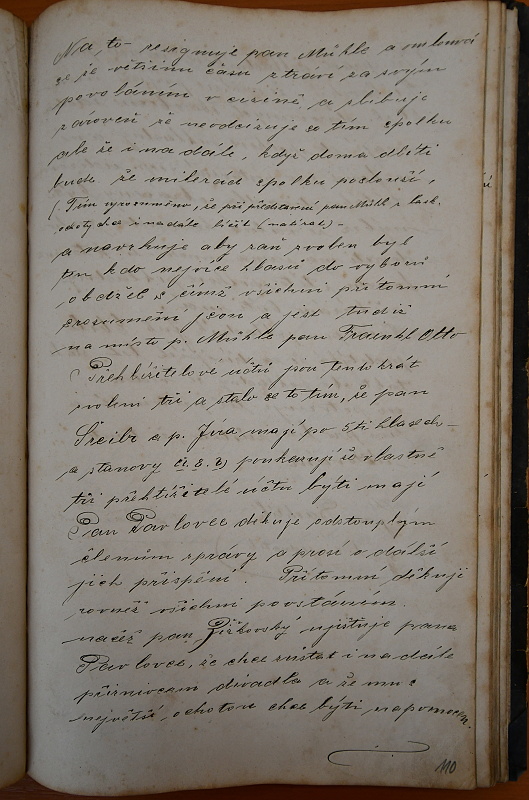 Na to resignuje pan Mühle a omlouvá
se že většinu času ztráví za svým
povoláním v cizině a slibuje
zároveň že neodcizuje se tím spolku
ale že i na dále, když doma dlíti
bude že milerád spolku poslouží,
(Tím vyrozuměno, že při představení pan Mühle z lásk.
ochotu chce i nadále líčit (malírat).–
a navrhuje aby zaň zvolen byl
pan kdo nejvíce hlasů do výboru
obdržel s čímž všichni přítomní
srozuměni jsou a jest tudíž
na místo p. Mühle pan Fraenkl Otto
Přehlížitelové účtů jsou tenkrát
zvoleni tři a stalo se to tím, že pan
Šreibr a p. Jíra mají po 5ti hlasech –
a stanovy poukazují že vlastně
tři přehlížitelé účtu býti mají
Pan Pavlovec děkuje odstouplým
členům správy a prosí o další
jich přispění. Přítomní děkují
rovněž všichni povstáním.
načež pan Žižkovský ujišťuje pana
Pavlovce, že chce zůstat i na dále
příznivcem divadla a že mu s
největší ochotou chce býti nápomocen.
110